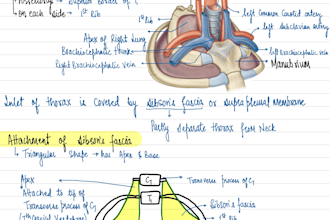 on each side → 1st Rib
1st Rib
Left Common Carotid artery
Left Subclavian artery
Apex of Right Lung
Brachiocephalic trunk
Right Brachiocephalic vein
Left Brachiocephalic vein
Manubrium
Inlet of thorax is covered by Sibson's fascia or suprapleural Membrane
→ Partly Separate thorax from Neck
Attachment of Sibson's fascia
→ Triangular Shape → has Apex & Base
Apex
C7
Transverse process of C7
Attached to tip of
T1
Transverse process of C7
Sibson's fascia
(7th Cervical Vertebra)
1st Rib